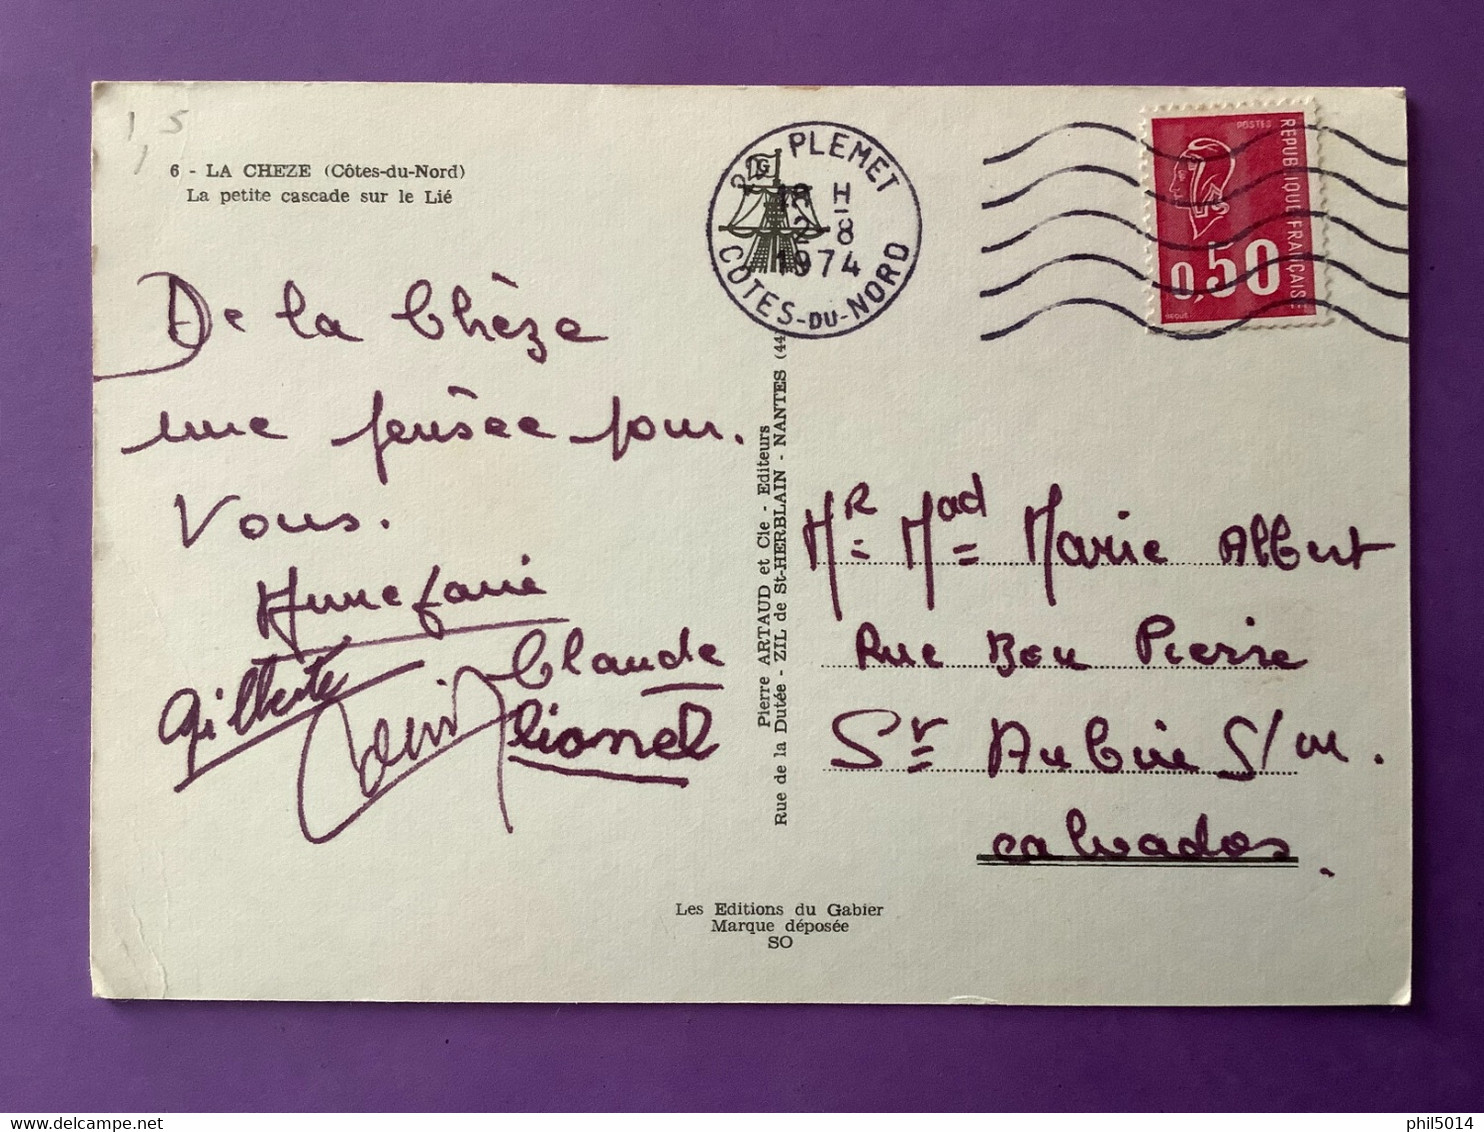 1,5
6 - LA CHEZE (Côtes-du-Nord)
La petite cascade sur le Lié
De la Chèze
une pensée pour
Vous.
Claude
Gilberte
lionel
Pierre ARTAUD et Cie - Editeurs
Rue de la Dutée - ZIL de St-HERBLAIN - NANTES (44)
22 PLEMET
18 H
2 - 8
1974
COTES-DU-NORD
POSTES
REPUBLIQUE FRANÇAISE
0,50
BEQUET
Mr = Mad = Marie Albert
Rue Bon Pierre
St Aubin S/m.
calvados.
Les Editions du Gabier
Marque déposée
SO
delcampe.net
phil5014